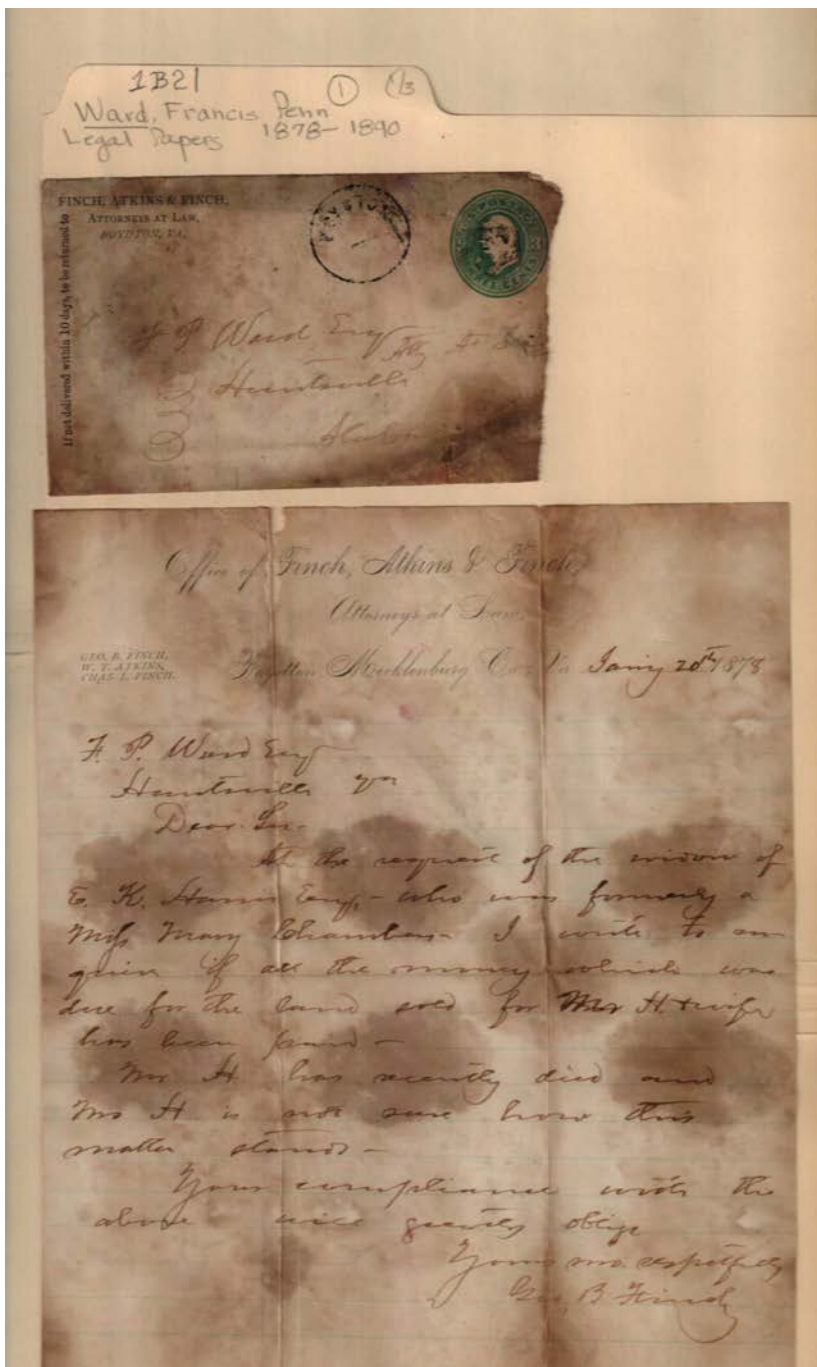 1B21
① 1/3
Ward, Francis Penn
Legal Papers 1878-1890
FINCH, ATKINS & FINCH,
ATTORNEYS AT LAW,
BOYDTON, VA.
If not delivered within 10 days, to be returned to
F P Ward Esq
Atty At
Huntsville
Office of Finch, Atkins & Finch,
Attorneys at Law,
GEO. B. FINCH,
W. T. ATKINS,
CHAS. L. FINCH.
Boydton, Mecklenburg Co., Va Jany 20th 1878
F. P. Ward Esq
Huntsville
Dear Sir-
At the request of the widow of
E. K. Harris Esq, - who was formerly a
Miss Mary Chambers - I write to en
quire if all the money which was
due for the land sold for Mr H. & wife
has been paid -
Mr H has recently died and
Mrs H is not sure how this
matter stands -
Your compliance with the
above will greatly oblige
Yours mo. respectfully
Geo, B Finch